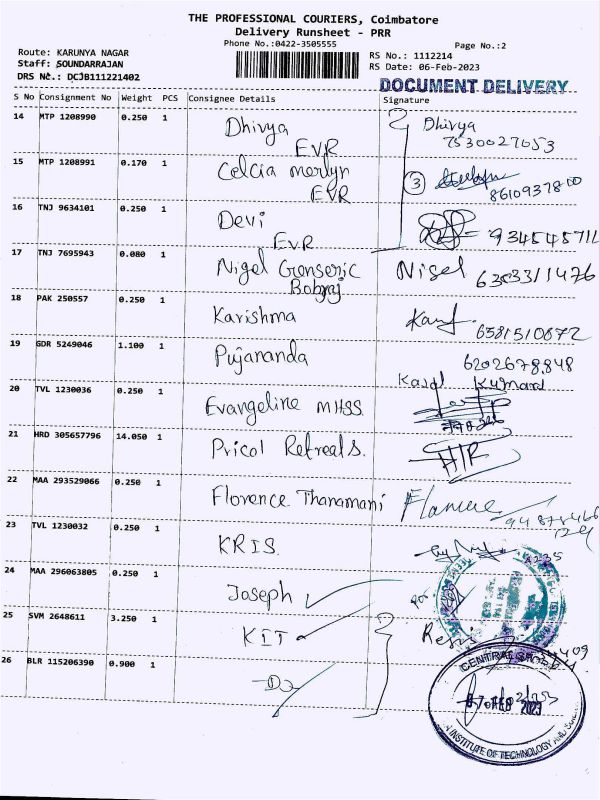 THE PROFESSIONAL COURIERS, Coimbatore
Delivery Runsheet - PRR
Phone No.:0422-3505555
Page No.:2
Route: KARUNYA NAGAR
RS No.: 1112214
Staff: SOUNDARRAJAN
RS Date: 06-Feb-2023
DRS No.: DCJB111221402
DOCUMENT DELIVERY
S No Consignment No Weight PCS Consignee Details Signature
14 MTP 1208990 0.250 1 Dhivya EVR Dhivya
7530027053
15 MTP 1208991 0.170 1 Celcia merlyn EVR 3
8610937800
16 TNJ 9634101 0.250 1 Devi EVR 9345445711
17 TNJ 7695943 0.080 1 Nigel Genseric Nigel 6383311476
18 PAK 250557 0.250 1 Karishma 6381510672
19 GDR 5249046 1.100 1 Pujananda 6202678848
Kumari
20 TVL 1230036 0.250 1 Evangeline MHSS
21 HRD 305657796 14.050 1 Pricol Retreats
22 MAA 293529066 0.250 1 Florence Thanamani
23 TVL 1230032 0.250 1 KRIS
24 MAA 296063805 0.250 1 Joseph
25 SVM 2648611 3.250 1 KIT
26 BLR 115206390 0.900 1 Do
CENTRAL
07 FEB 2023
INSTITUTE OF TECHNOLOGY